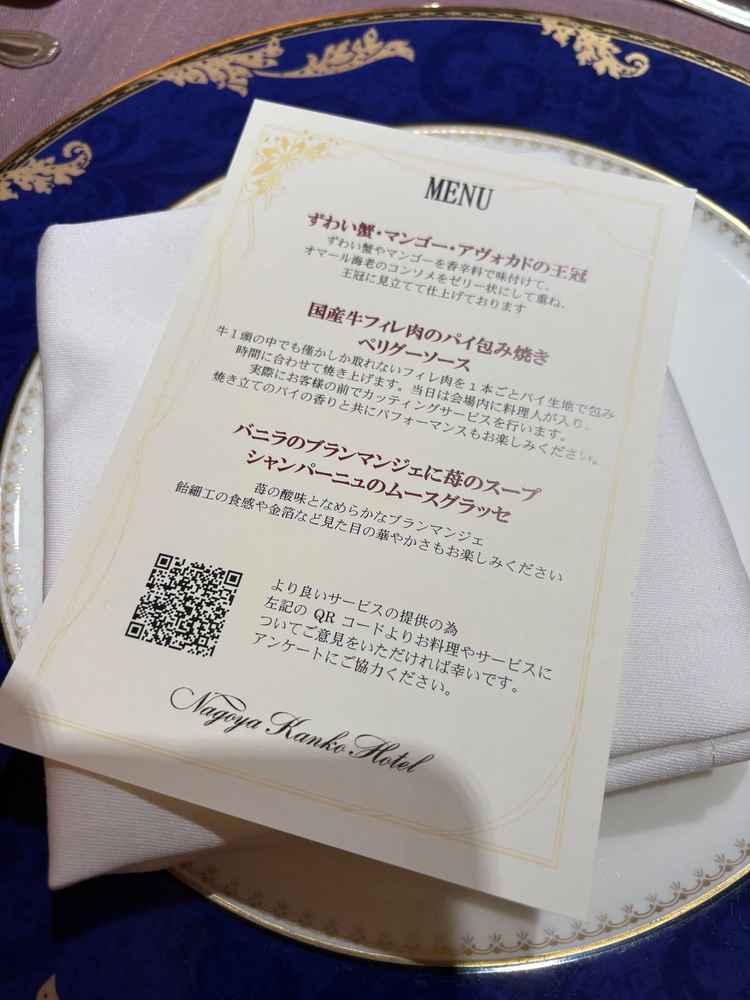 MENU
ずわい蟹・マンゴー・アヴォカドの王冠
ずわい蟹やマンゴーを香辛料で味付けて、
オマール海老のコンソメをゼリー状にして重ね、
王冠に見立てて仕上げております
国産牛フィレ肉のパイ包み焼き
ペリグーソース
牛1頭の中でも僅かしか取れないフィレ肉を1本ごとパイ生地で包み
時間に合わせて焼き上げます。当日は会場内に料理人が入り、
実際にお客様の前でカッティングサービスを行います。
焼き立てのパイの香りと共にパフォーマンスもお楽しみください。
バニラのブランマンジェに苺のスープ
シャンパーニュのムースグラッセ
苺の酸味となめらかなブランマンジェ
飴細工の食感や金箔など見た目の華やかさもお楽しみください
より良いサービスの提供の為
左記の QR コードよりお料理やサービスに
ついてご意見をいただければ幸いです。
アンケートにご協力ください。
Nagoya Kanko Hotel